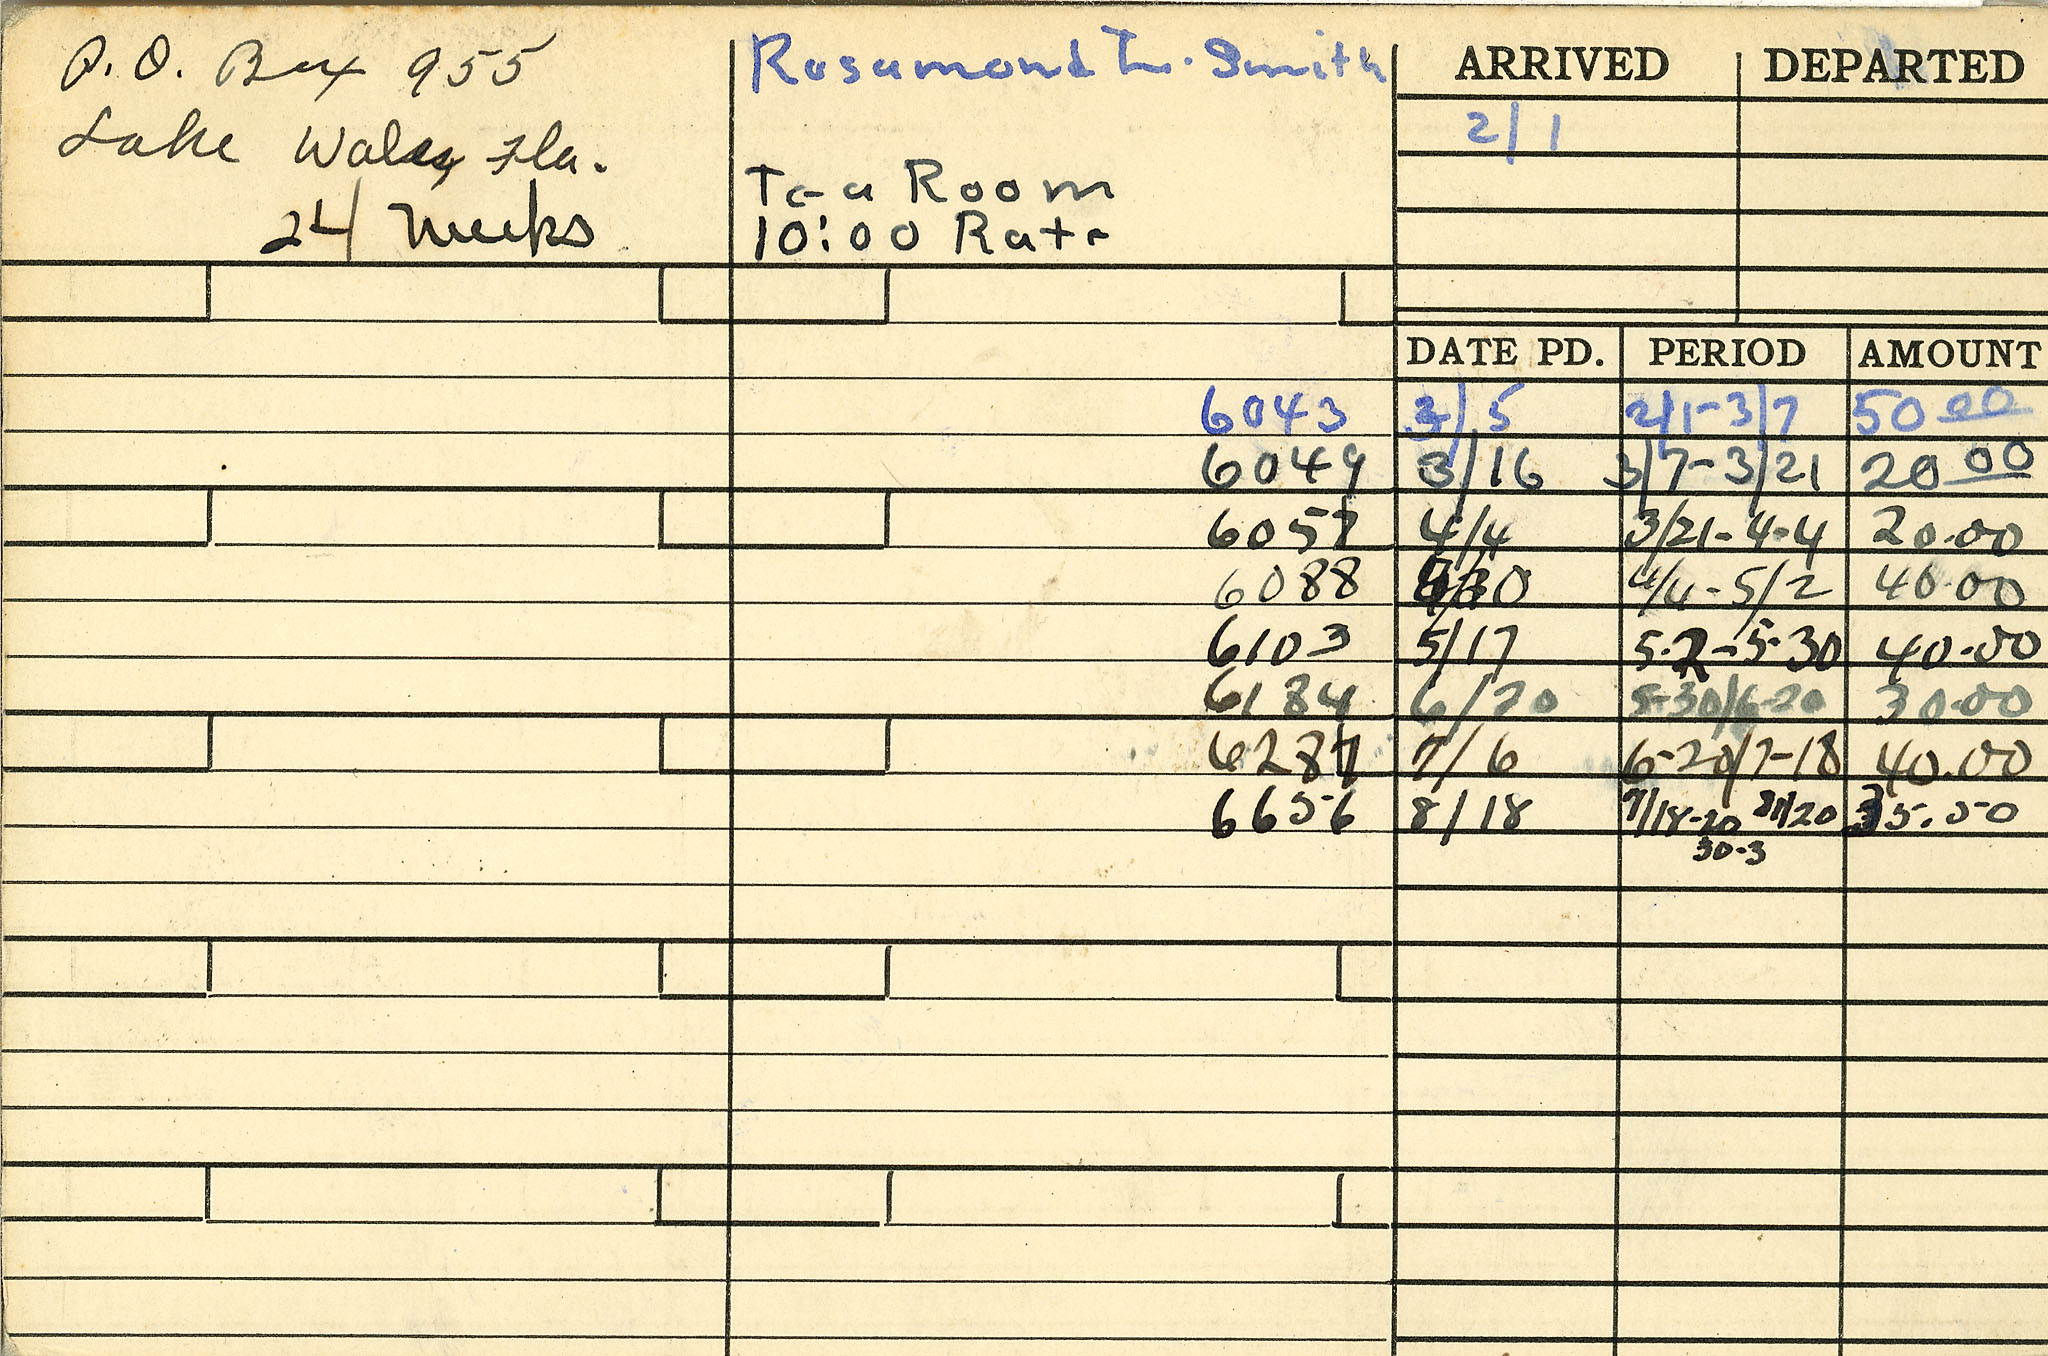 P.O. Box 955
Lake Wales, Fla.
24 Weeks
Rosamond L. Smith
Tea Room
10:00 Rate
ARRIVED DEPARTED
2/1
DATE PD. PERIOD AMOUNT
6043 3/5 2/1-3/7 50 00
6049 3/16 3/7-3/21 20 00
6057 4/4 3/21-4-4 20.00
6088 4/30 4/4-5/2 40.00
6103 5/17 5-2-5-30 40.00
6184 6/20 5-30/6-20 30.00
6287 7/6 6-20/7-18 40.00
6656 8/18 7/18-20 20 35.50
30-3